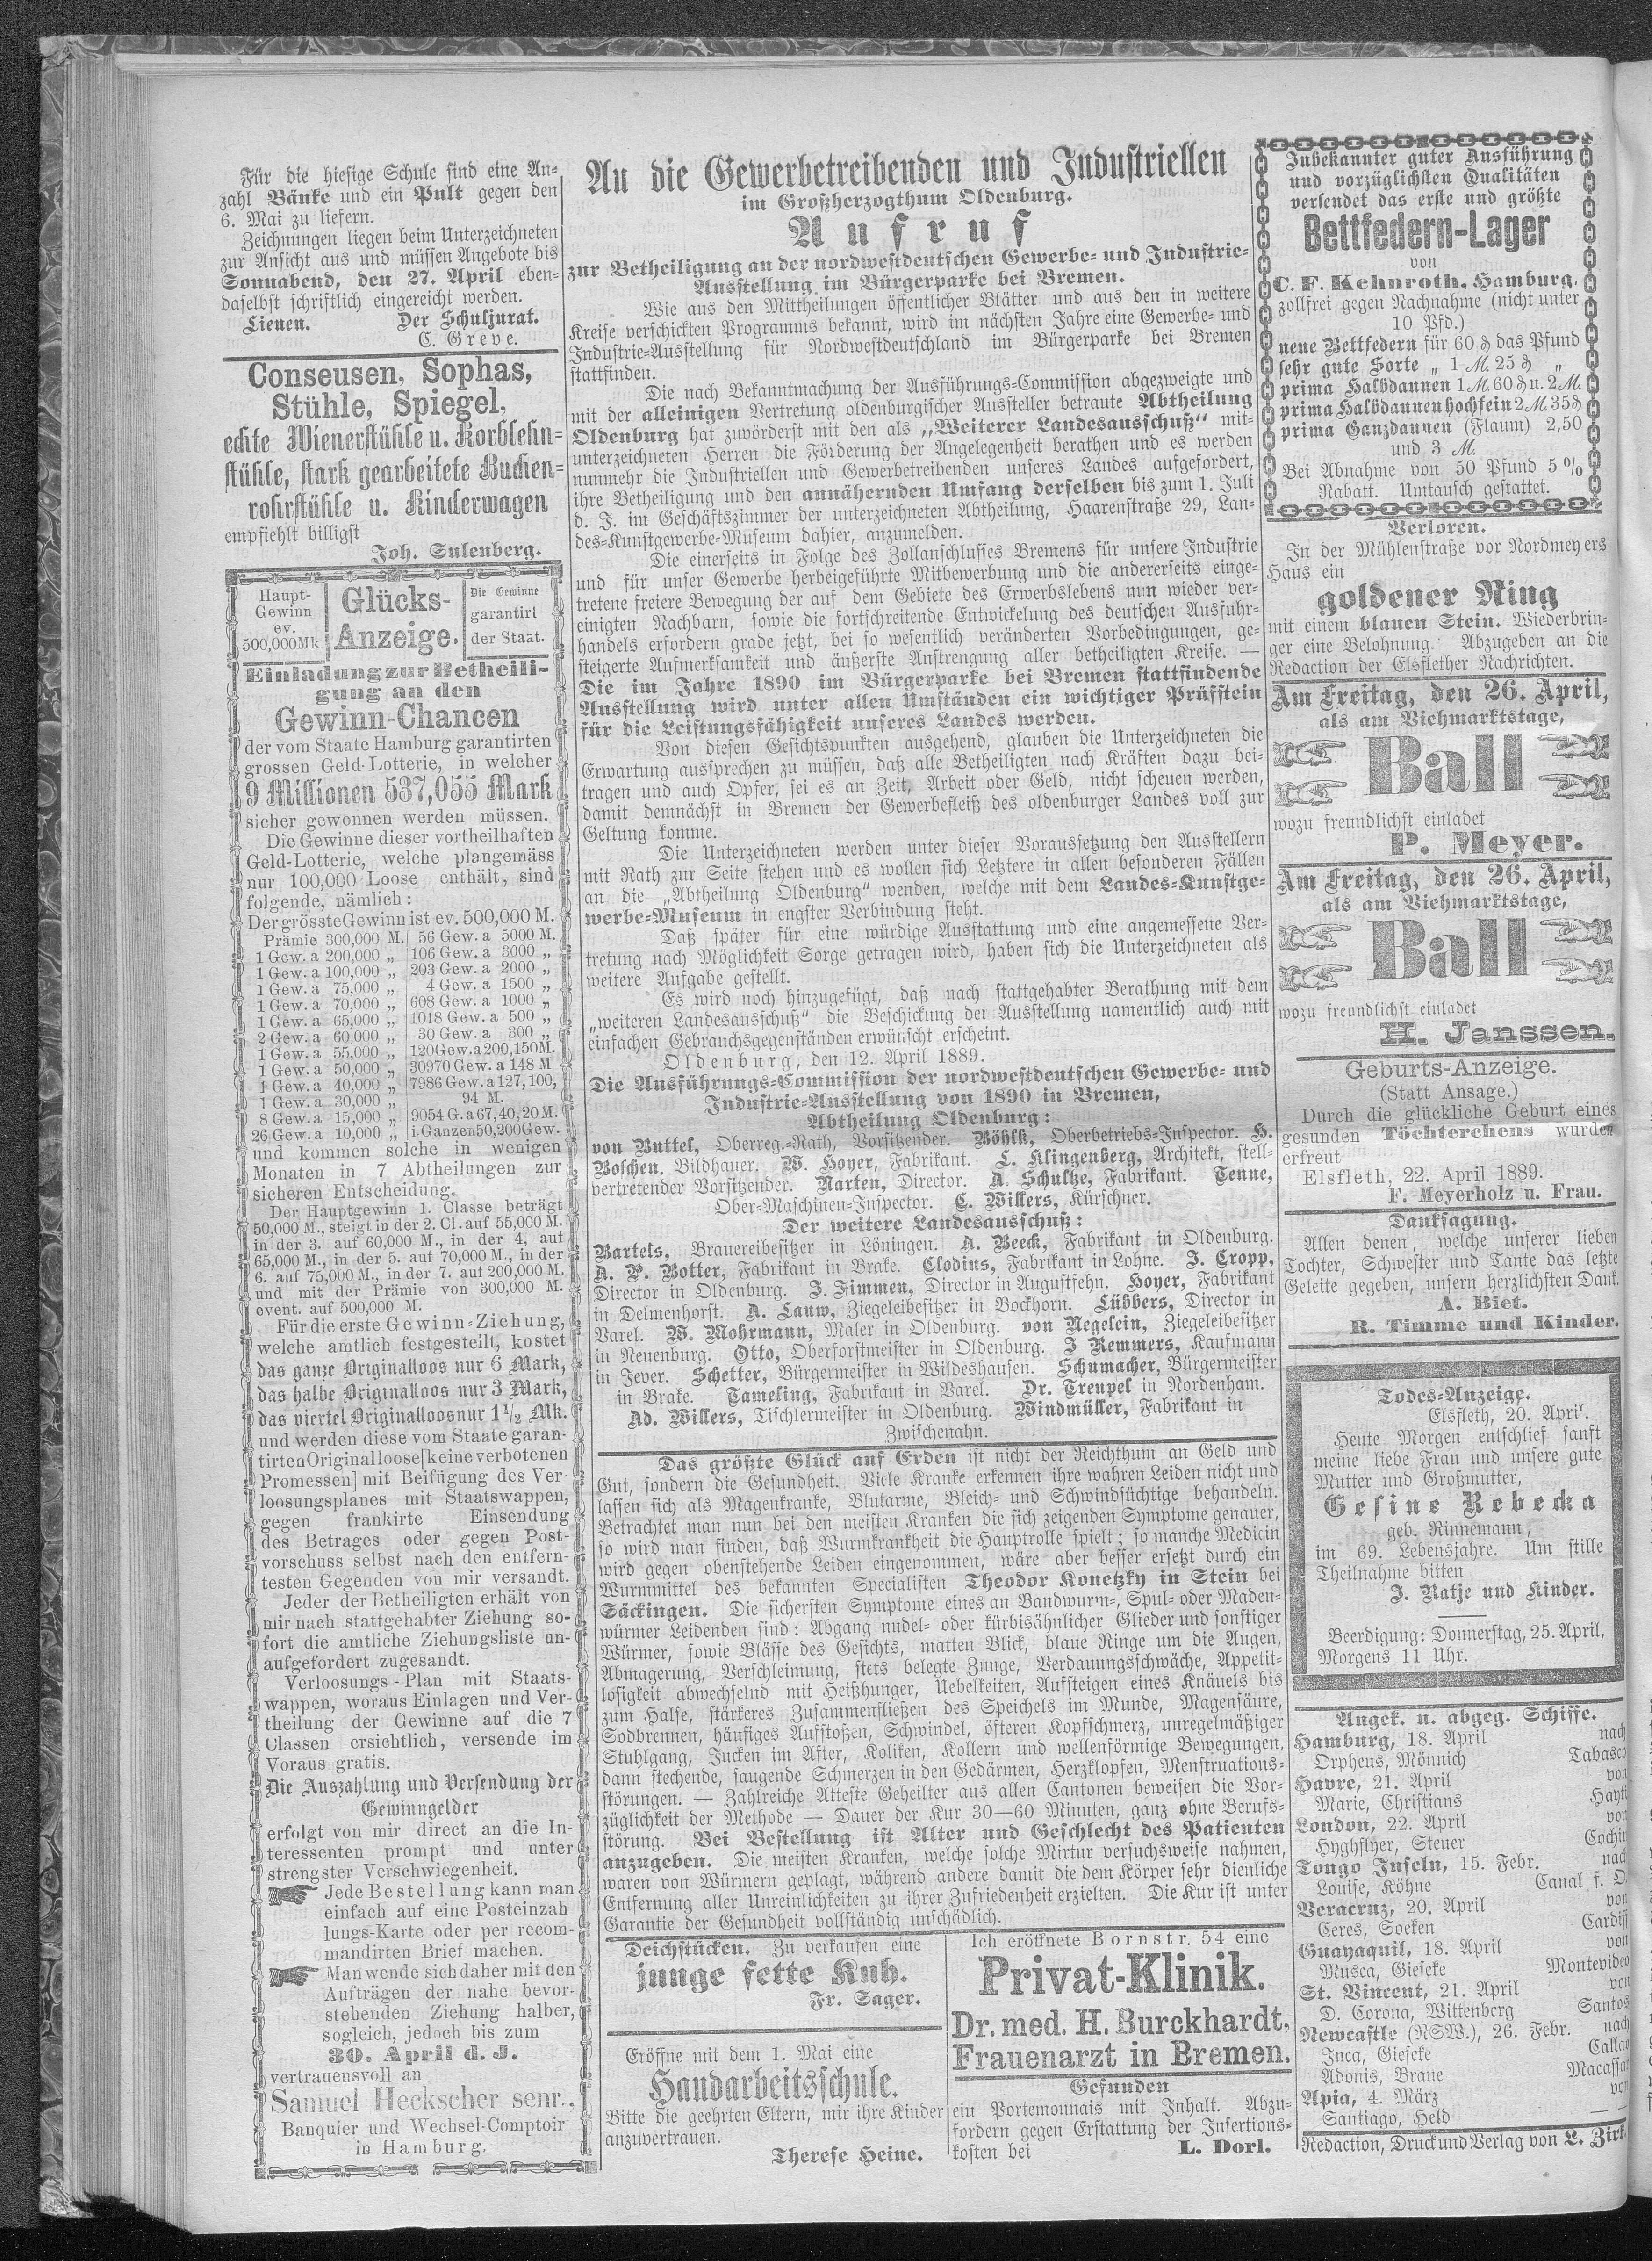 Für die hiesige Schule sind eine An-
zahl Bänke und ein Pult gegen den
6. Mai zu liefern.
Zeichnungen liegen beim Unterzeichneten
zur Ansicht aus und müssen Angebote bis
Sonnabend, den 27. April eben-
daselbst schriftlich eingereicht werden.
Lienen. Der Schuljurat.
C. Greve.
Conseusen, Sophas,
Stühle, Spiegel,
echte Wienerstühle u. Korblehn-
stühle, stark gearbeitete Buchen-
rohrstühle u. Kinderwagen
empfiehlt billigst
Joh. Sulenberg.
Haupt-
Gewinn
ev.
500,000Mk
Glücks-
Anzeige.
Die Gewinne
garantirt
der Staat.
Einladung zur Betheili-
gung an den
Gewinn-Chancen
der vom Staate Hamburg garantirten
grossen Geld-Lotterie, in welcher
9 Millionen 537,055 Mark
sicher gewonnen werden müssen.
Die Gewinne dieser vortheilhaften
Geld-Lotterie, welche plangemäss
nur 100,000 Loose enthält, sind
folgende, nämlich:
Der grösste Gewinn ist ev. 500,000 M.
Prämie 300,000 M. 56 Gew. a 5000 M.
1 Gew. a 200,000 „ 106 Gew. a 3000 „
1 Gew. a 100,000 „ 203 Gew. a 2000 „
1 Gew. a 75,000 „ 4 Gew. a 1500 „
1 Gew. a 70,000 „ 608 Gew. a 1000 „
1 Gew. a 65,000 „ 1018 Gew. a 500 „
2 Gew. a 60,000 „ 30 Gew. a 300 „
1 Gew. a 55,000 „ 120Gew. a 200,150M.
1 Gew. a 50,000 „ 30970 Gew. a 148 M
1 Gew. a 40,000 „ 7986 Gew. a 127, 100,
1 Gew. a 30,000 „ 94 M.
8 Gew. a 15,000 „ 9054 G. a 67,40,20 M.
26 Gew. a 10,000 „ i. Ganzen 50,200 Gew.
und kommen solche in wenigen
Monaten in 7 Abtheilungen zur
sicheren Entscheidung.
Der Hauptgewinn 1. Classe beträgt
50,000 M., steigt in der 2. Cl. auf 55,000 M.
in der 3. auf 60,000 M., in der 4, auf
65,000 M., in der 5. auf 70,000 M., in der
6. auf 75,000 M., in der 7. auf 200,000 M.
und mit der Prämie von 300,000 M.
event. auf 500,000 M.
Für die erste Gewinn-Ziehung,
welche amtlich festgestellt, kostet
das ganze Originalloos nur 6 Mark,
das halbe Originalloos nur 3 Mark,
das viertel Originalloos nur 1 1/2 Mk.
und werden diese vom Staate garan-
tirten Originalloose [keine verbotenen
Promessen] mit Beifügung des Ver-
loosungsplanes mit Staatswappen,
gegen frankirte Einsendung
des Betrages oder gegen Post-
vorschuss selbst nach den entfern-
testen Gegenden von mir versandt.
Jeder der Betheiligten erhält von
mir nach stattgehabter Ziehung so-
fort die amtliche Ziehungsliste un-
aufgefordert zugesandt.
Verloosungs-Plan mit Staats-
wappen, woraus Einlagen und Ver-
theilung der Gewinne auf die 7
Classen ersichtlich, versende im
Voraus gratis.
Die Auszahlung und Versendung der
Gewinngelder
erfolgt von mir direct an die In-
teressenten prompt und unter
strengster Verschwiegenheit.
Jede Bestellung kann man
einfach auf eine Posteinzah
lungs-Karte oder per recom-
mandirten Brief machen.
Man wende sich daher mit den
Aufträgen der nahe bevor-
stehenden Ziehung halber,
sogleich, jedoch bis zum
30. April d. J.
vertrauensvoll an
Samuel Heckscher senr.,
Banquier und Wechsel-Comptoir
in Hamburg.
An die Gewerbetreibenden und Industriellen
im Großherzogthum Oldenburg.
Aufruf
zur Betheiligung an der nordwestdeutschen Gewerbe- und Industrie-
Ausstellung im Bürgerparke bei Bremen.
Wie aus den Mittheilungen öffentlicher Blätter und aus den in weitere
Kreise verschickten Programms bekannt, wird im nächsten Jahre eine Gewerbe- und
Industrie-Ausstellung für Nordwestdeutschland im Bürgerparke bei Bremen
stattfinden.
Die nach Bekanntmachung der Ausführungs-Commission abgezweigte und
mit der alleinigen Vertretung oldenburgischer Aussteller betraute Abtheilung
Oldenburg hat zuvörderst mit den als „Weiterer Landesausschuß“ mit-
unterzeichneten Herren die Förderung der Angelegenheit berathen und es werden
nunmehr die Industriellen und Gewerbetreibenden unseres Landes aufgefordert,
ihre Betheiligung und den annähernden Umfang derselben bis zum 1. Juli
d. J. im Geschäftszimmer der unterzeichneten Abtheilung, Haarenstraße 29, Lan-
des-Kunstgewerbe-Museum dahier, anzumelden.
Die einerseits in Folge des Zollanschlusses Bremens für unsere Industrie
und für unser Gewerbe herbeigeführte Mitbewerbung und die andererseits einge-
tretene freiere Bewegung der auf dem Gebiete des Erwerbslebens nun wieder ver-
einigten Nachbarn, sowie die fortschreitende Entwickelung des deutschen Ausfuhr-
handels erfordern grade jetzt, bei so wesentlich veränderten Vorbedingungen, ge-
steigerte Aufmerksamkeit und äußerste Anstrengung aller betheiligten Kreise. —
Die im Jahre 1890 im Bürgerparke bei Bremen stattfindende
Ausstellung wird unter allen Umständen ein wichtiger Prüfstein
für die Leistungsfähigkeit unseres Landes werden.
Von diesen Gesichtspunkten ausgehend, glauben die Unterzeichneten die
Erwartung aussprechen zu müssen, daß alle Betheiligten nach Kräften dazu bei-
tragen und auch Opfer, sei es an Zeit, Arbeit oder Geld, nicht scheuen werden,
damit demnächst in Bremen der Gewerbefleiß des oldenburger Landes voll zur
Geltung komme.
Die Unterzeichneten werden unter dieser Voraussetzung den Ausstellern
mit Rath zur Seite stehen und es wollen sich Letztere in allen besonderen Fällen
an die „Abtheilung Oldenburg“ wenden, welche mit dem Landes-Kunstge-
werbe-Museum in engster Verbindung steht.
Daß später für eine würdige Ausstattung und eine angemessene Ver-
tretung nach Möglichkeit Sorge getragen wird, haben sich die Unterzeichneten als
weitere Aufgabe gestellt.
Es wird noch hinzugefügt, daß nach stattgehabter Berathung mit dem
„weiteren Landesausschuß“ die Beschickung der Ausstellung namentlich auch mit
einfachen Gebrauchsgegenständen erwünscht erscheint.
Oldenburg, den 12. April 1889.
Die Ausführungs-Commission der nordwestdeutschen Gewerbe- und
Industrie-Ausstellung von 1890 in Bremen,
Abtheilung Oldenburg:
von Buttel, Oberreg.-Rath, Vorsitzender. Böhlk, Oberbetriebs-Inspector. H.
Boschen, Bildhauer. W. Hoyer, Fabrikant. L. Klingenberg, Architekt, stell-
vertretender Vorsitzender. Narten, Director. A. Schultze, Fabrikant. Tenne,
Ober-Maschinen-Inspector. C. Willers, Kürschner.
Der weitere Landesausschuß:
Bartels, Brauereibesitzer in Löningen. A. Beeck, Fabrikant in Oldenburg.
A. P. Botter, Fabrikant in Brake. Clodius, Fabrikant in Lohne. J. Cropp,
Director in Oldenburg. J. Fimmen, Director in Augustfehn. Hoyer, Fabrikant
in Delmenhorst. A. Lauw, Ziegeleibesitzer in Bockhorn. Lübbers, Director in
Varel. W. Mohrmann, Maler in Oldenburg. von Negelein, Ziegeleibesitzer
in Neuenburg. Otto, Oberforstmeister in Oldenburg. J Remmers, Kaufmann
in Jever. Schetter, Bürgermeister in Wildeshausen. Schumacher, Bürgermeister
in Brake. Tameling, Fabrikant in Varel. Dr. Treupel in Nordenham.
Ad. Willers, Tischlermeister in Oldenburg. Windmüller, Fabrikant in
Zwischenahn.
Das größte Glück auf Erden ist nicht der Reichthum an Geld und
Gut, sondern die Gesundheit. Viele Kranke erkennen ihre wahren Leiden nicht und
lassen sich als Magenkranke, Blutarme, Bleich- und Schwindsüchtige behandeln.
Betrachtet man nun bei den meisten Kranken die sich zeigenden Symptome genauer,
so wird man finden, daß Wurmkrankheit die Hauptrolle spielt; so manche Medicin
wird gegen obenstehende Leiden eingenommen, wäre aber besser ersetzt durch ein
Wurmmittel des bekannten Specialisten Theodor Konetzky in Stein bei
Säckingen. Die sichersten Symptome eines an Bandwurm-, Spul- oder Maden-
würmer Leidenden sind: Abgang nudel- oder kürbisähnlicher Glieder und sonstiger
Würmer, sowie Blässe des Gesichts, matten Blick, blaue Ringe um die Augen,
Abmagerung, Verschleimung, stets belegte Zunge, Verdauungsschwäche, Appetit-
losigkeit abwechselnd mit Heißhunger, Uebelkeiten, Aufsteigen eines Knäuels bis
zum Halse, stärkeres Zusammenfließen des Speichels im Munde, Magensäure,
Sodbrennen, häufiges Aufstoßen, Schwindel, öfteren Kopfschmerz, unregelmäßiger
Stuhlgang, Jucken im After, Koliken, Kollern und wellenförmige Bewegungen,
dann stechende, saugende Schmerzen in den Gedärmen, Herzklopfen, Menstruations-
störungen. — Zahlreiche Atteste Geheilter aus allen Cantonen beweisen die Vor-
züglichkeit der Methode — Dauer der Kur 30—60 Minuten, ganz ohne Berufs-
störung. Bei Bestellung ist Alter und Geschlecht des Patienten
anzugeben. Die meisten Kranken, welche solche Mixtur versuchsweise nahmen,
waren von Würmern geplagt, während andere damit die dem Körper sehr dienliche
Entfernung aller Unreinlichkeiten zu ihrer Zufriedenheit erzielten. Die Kur ist unter
Garantie der Gesundheit vollständig unschädlich.
Deichstücken. Zu verkaufen eine
junge fette Kuh.
Fr. Sager.
Eröffne mit dem 1. Mai eine
Handarbeitsschule.
Bitte die geehrten Eltern, mir ihre Kinder
anzuvertrauen.
Therese Heine.
Ich eröffnete Bornstr. 54 eine
Privat-Klinik.
Dr. med. H. Burckhardt,
Frauenarzt in Bremen.
Gefunden
ein Portemonnais mit Inhalt. Abzu-
fordern gegen Erstattung der Insertions-
kosten bei L. Dorl.
In bekannter guter Ausführung
und vorzüglichsten Qualitäten
versendet das erste und größte
Bettfedern-Lager
von
C. F. Kehnroth, Hamburg,
zollfrei gegen Nachnahme (nicht unter
10 Pfd.)
neue Bettfedern für 60 ₰ das Pfund
sehr gute Sorte „ 1 M. 25 ₰ „
prima Halbdaunen 1 M. 60 ₰ u. 2 M.
prima Halbdaunen hochfein 2 M. 35 ₰
prima Ganzdaunen (Flaum) 2,50
und 3 M.
Bei Abnahme von 50 Pfund 5 %
Rabatt. Umtausch gestattet.
Verloren.
In der Mühlenstraße vor Nordmeyers
Haus ein
goldener Ring
mit einem blauen Stein. Wiederbrin-
ger eine Belohnung. Abzugeben an die
Redaction der Elsflether Nachrichten.
Am Freitag, den 26. April,
als am Viehmarktstage,
Ball
wozu freundlichst einladet
P. Meyer.
Am Freitag, den 26. April,
als am Viehmarktstage,
Ball
wozu freundlichst einladet
H. Janssen.
Geburts-Anzeige.
(Statt Ansage.)
Durch die glückliche Geburt eines
gesunden Töchterchens wurden
erfreut
Elsfleth, 22. April 1889.
F. Meyerholz u. Frau.
Danksagung.
Allen denen, welche unserer lieben
Tochter, Schwester und Tante das letzte
Geleite gegeben, unsern herzlichsten Dank.
A. Biet.
R. Timme und Kinder.
Todes-Anzeige.
Elsfleth, 20. April.
Heute Morgen entschlief sanft
meine liebe Frau und unsere gute
Mutter und Großmutter,
Gesine Rebecka
geb. Rinnemann,
im 69. Lebensjahre. Um stille
Theilnahme bitten
J. Ratje und Kinder.
Beerdigung: Donnerstag, 25. April,
Morgens 11 Uhr.
Angek. u. abgeg. Schiffe.
Hamburg, 18. April nach
Orpheus, Mönnich Tabasco
Havre, 21. April von
Marie, Christians Hayti
London, 22. April von
Hyghflyer, Steuer Cochin
Tongo Inseln, 15. Febr. nach
Louise, Köhne Canal f. O
Veracruz, 20. April von
Ceres, Soeken Cardiff
Guayaquil, 18. April von
Musca, Gieseke Montevideo
St. Vincent, 21. April von
D. Corona, Wittenberg Santos
Newcastle (NSW.), 26. Febr. nach
Inca, Gieseke Callao
Adonis, Braue Macassar
Apia, 4. März von
Santiago, Held — —
Redaction, Druck und Verlag von L. Zirk